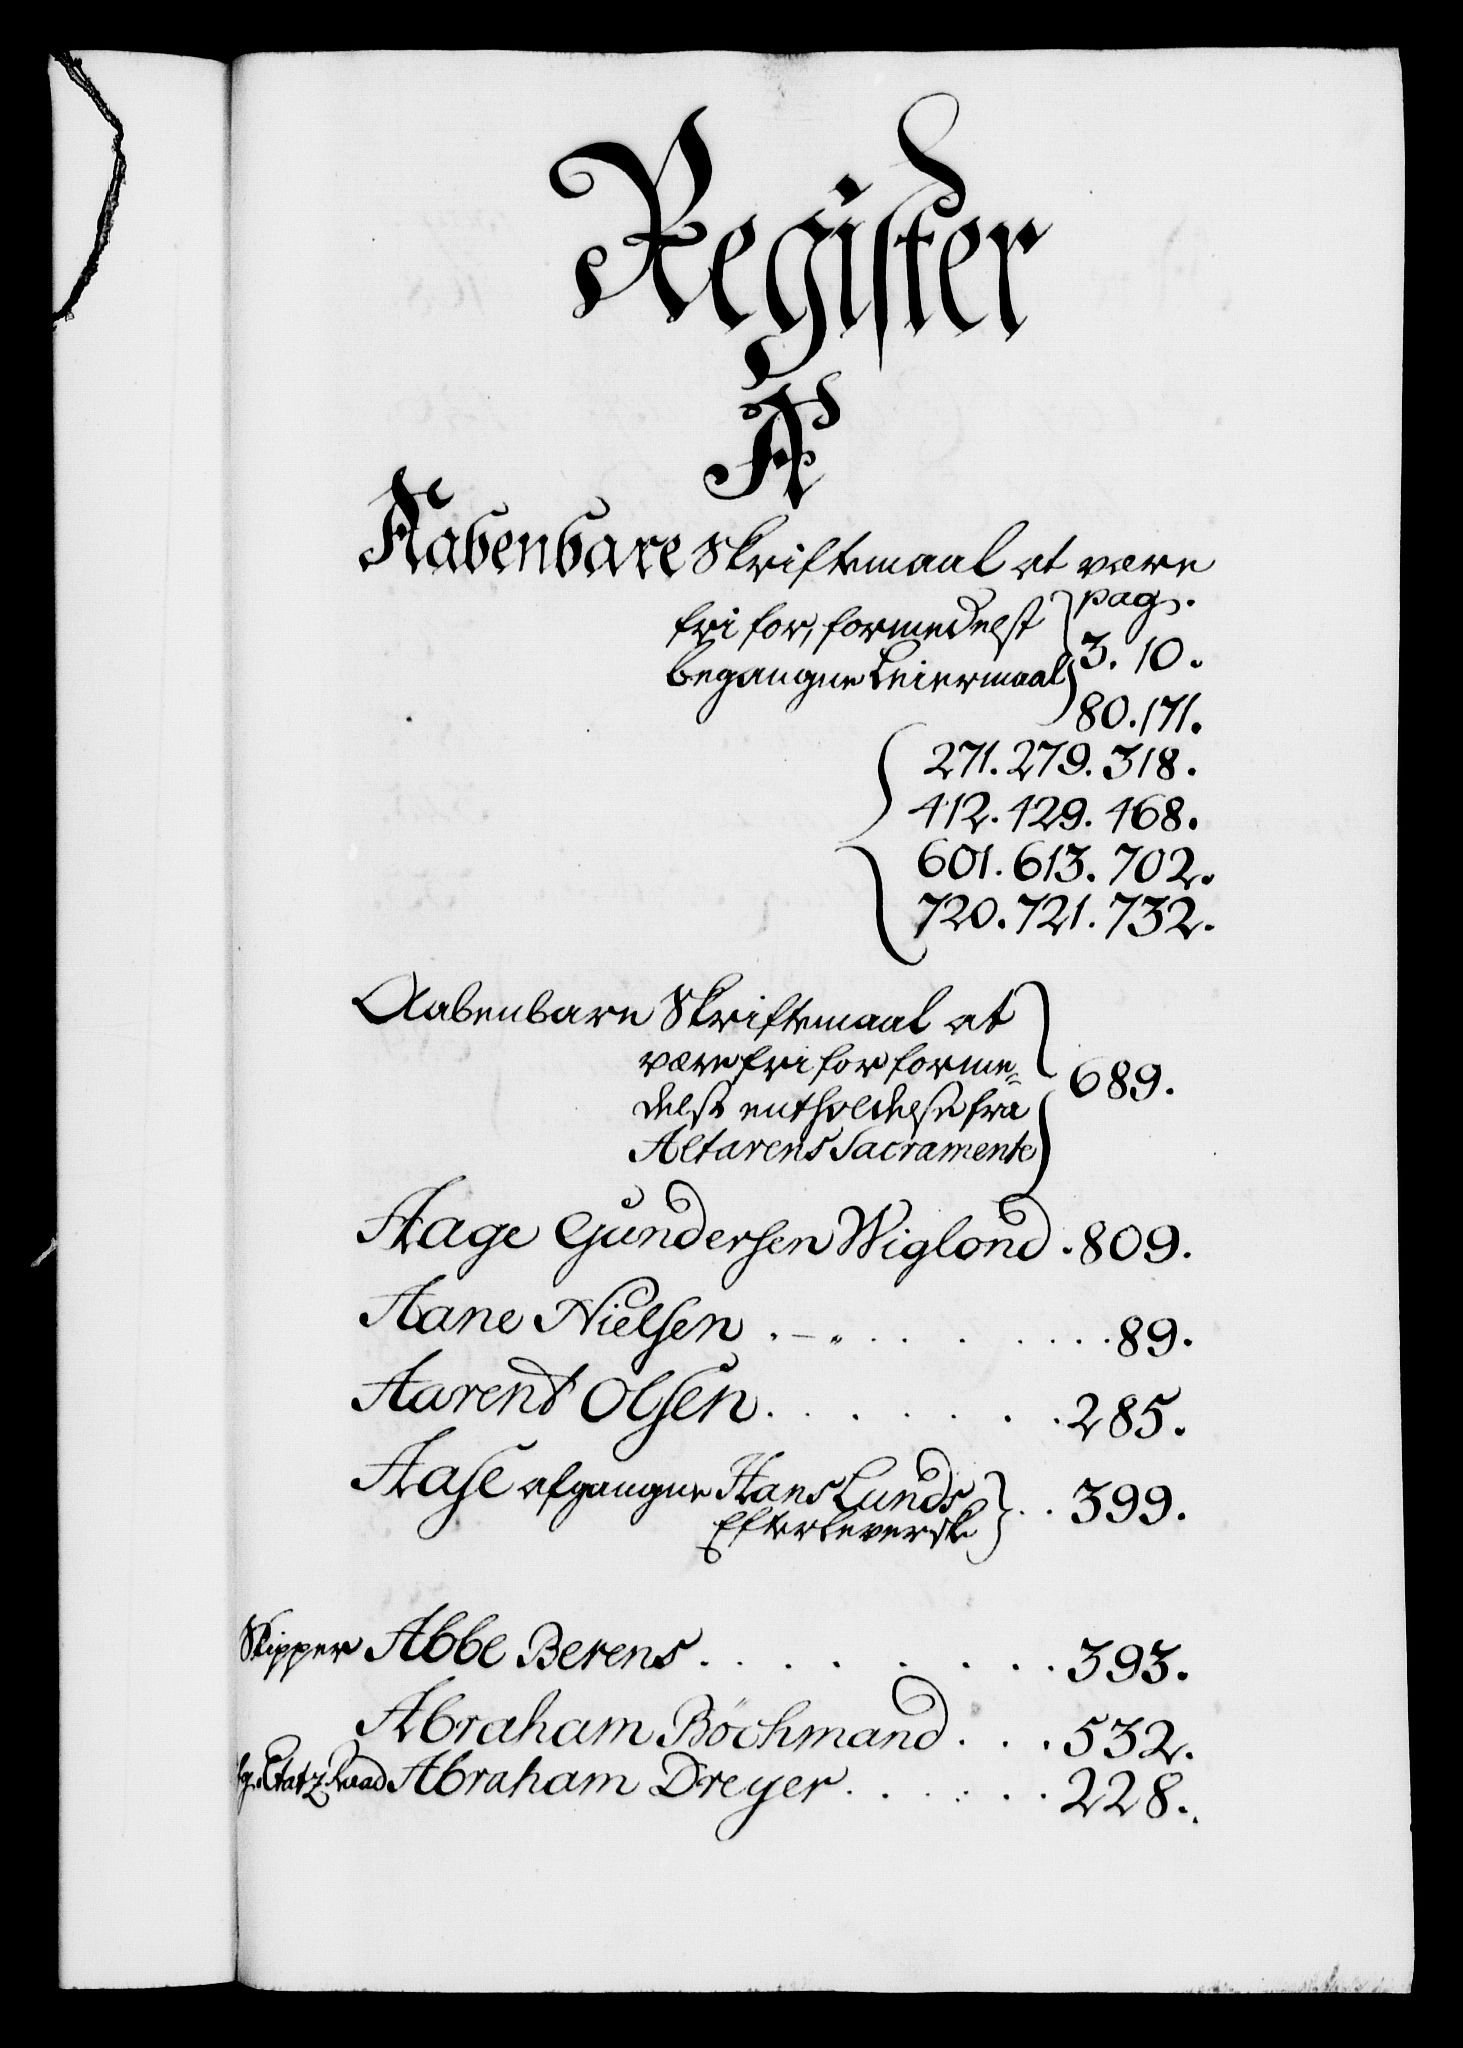 Register
A
Aabenbare Skriftemaal at være
fri for, formedelst
begangne Leiermaal
pag.
3. 10.
80. 171.
271. 279. 318.
412. 429. 468.
601. 613. 702.
720. 721. 732.
Aabenbare Skriftemaal at
være fri for forme-
delst entholdelse fra
Altarens Sacramente
689.
Aage Gundersen Wiglond . 809.
Aane Nielsen . . . . . . . 89.
Aarent Olsen . . . . . . 285.
Aase afgangne Hans Lunds
Efterleverske . . 399.
Skipper Abbe Berens . . . . . . . 393.
Abraham Böchmand . . . 532.
Etatz Raad Abraham Dreyer . . . . . . 228.